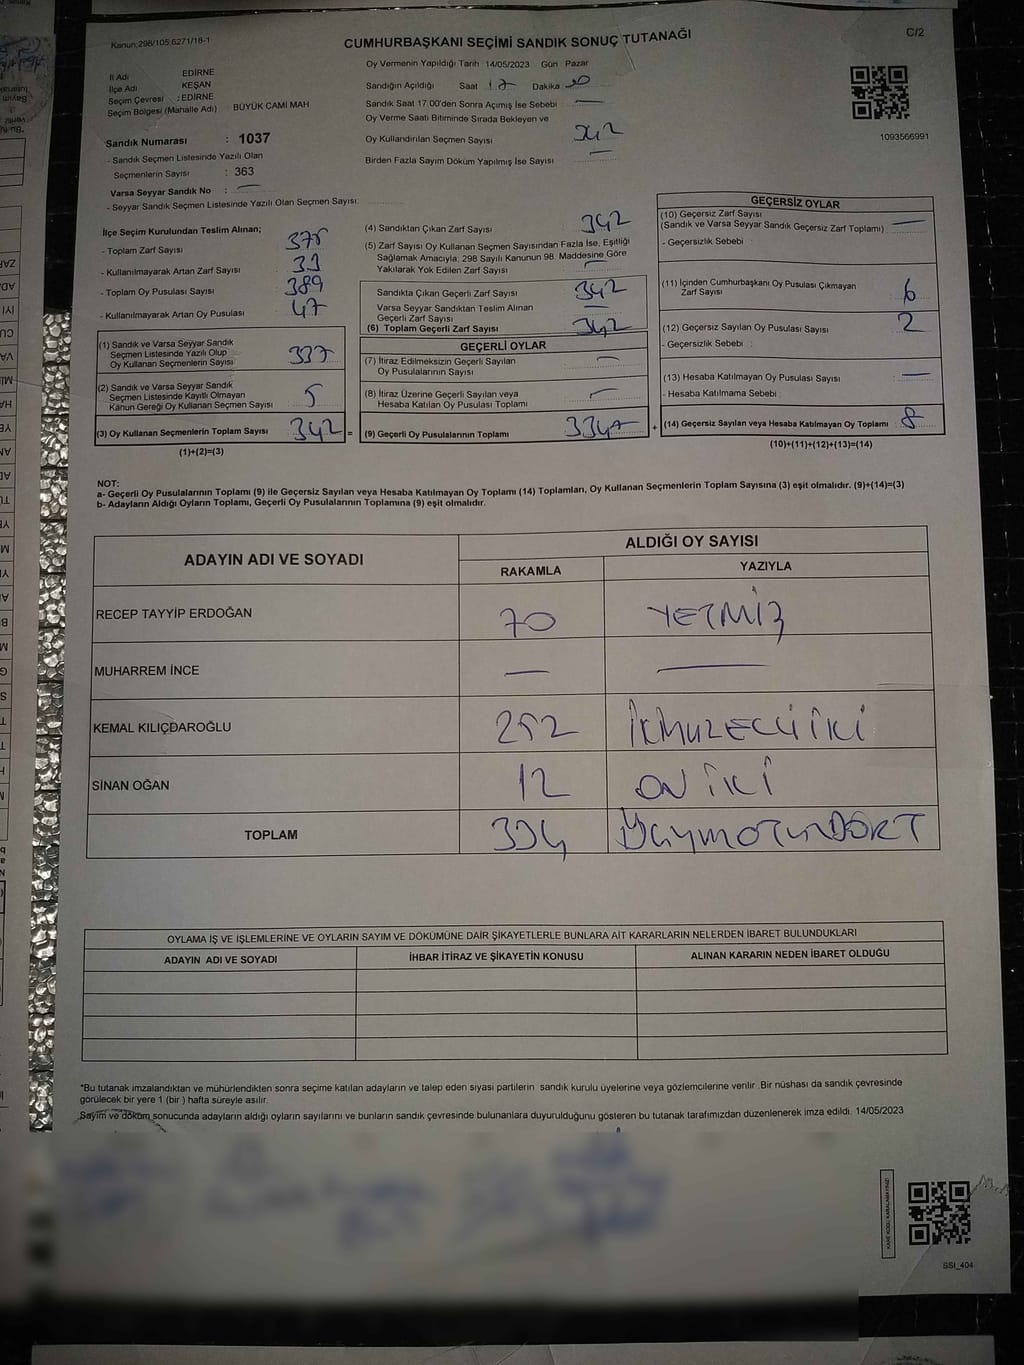 Kanun:298/105.6271/18-1
C/2
CUMHURBAŞKANI SEÇİMİ SANDIK SONUÇ TUTANAĞI
İl Adı EDİRNE
İlçe Adı KEŞAN
Seçim Çevresi : EDİRNE
Seçim Bölgesi (Mahalle Adı) BÜYÜK CAMİ MAH
Sandık Numarası : 1037
- Sandık Seçmen Listesinde Yazılı Olan
Seçmenlerin Sayısı : 363
Varsa Seyyar Sandık No : —
- Seyyar Sandık Seçmen Listesinde Yazılı Olan Seçmen Sayısı:
Oy Vermenin Yapıldığı Tarih 14/05/2023 Gün Pazar
Sandığın Açıldığı Saat 17 Dakika
Sandık Saat 17.00'den Sonra Açımış İse Sebebi —
Oy Verme Saati Bitiminde Sırada Bekleyen ve
Oy Kullandırılan Seçmen Sayısı 342
Birden Fazla Sayım Döküm Yapılmış İse Sayısı —
1093566991
İlçe Seçim Kurulundan Teslim Alınan;
- Toplam Zarf Sayısı
- Kullanılmayarak Artan Zarf Sayısı 33
- Toplam Oy Pusulası Sayısı 389
- Kullanılmayarak Artan Oy Pusulası 47
(1) Sandık ve Varsa Seyyar Sandık
Seçmen Listesinde Yazılı Olup
Oy Kullanan Seçmenlerin Sayısı 337
(2) Sandık ve Varsa Seyyar Sandık
Seçmen Listesinde Kayıtlı Olmayan
Kanun Gereği Oy Kullanan Seçmen Sayısı 5
(3) Oy Kullanan Seçmenlerin Toplam Sayısı 342 =
(1)+(2)=(3)
(4) Sandıktan Çıkan Zarf Sayısı 342
(5) Zarf Sayısı Oy Kullanan Seçmen Sayısından Fazla İse, Eşitliği
Sağlamak Amacıyla; 298 Sayılı Kanunun 98. Maddesine Göre
Yakılarak Yok Edilen Zarf Sayısı —
Sandıkta Çıkan Geçerli Zarf Sayısı 342
Varsa Seyyar Sandıktan Teslim Alınan
Geçerli Zarf Sayısı —
(6) Toplam Geçerli Zarf Sayısı 342
GEÇERLİ OYLAR
(7) İtiraz Edilmeksizin Geçerli Sayılan
Oy Pusulalarının Sayısı —
(8) İtiraz Üzerine Geçerli Sayılan veya
Hesaba Katılan Oy Pusulası Toplamı —
(9) Geçerli Oy Pusulalarının Toplamı 334 +
GEÇERSİZ OYLAR
(10) Geçersiz Zarf Sayısı
(Sandık ve Varsa Seyyar Sandık Geçersiz Zarf Toplamı) —
- Geçersizlik Sebebi
(11) İçinden Cumhurbaşkanı Oy Pusulası Çıkmayan
Zarf Sayısı 6
(12) Geçersiz Sayılan Oy Pusulası Sayısı 2
- Geçersizlik Sebebi :
(13) Hesaba Katılmayan Oy Pusulası Sayısı —
- Hesaba Katılmama Sebebi
(14) Geçersiz Sayılan veya Hesaba Katılmayan Oy Toplamı 8
(10)+(11)+(12)+(13)=(14)
NOT:
a- Geçerli Oy Pusulalarının Toplamı (9) ile Geçersiz Sayılan veya Hesaba Katılmayan Oy Toplamı (14) Toplamları, Oy Kullanan Seçmenlerin Toplam Sayısına (3) eşit olmalıdır. (9)+(14)=(3)
b- Adayların Aldığı Oyların Toplamı, Geçerli Oy Pusulalarının Toplamına (9) eşit olmalıdır.
ADAYIN ADI VE SOYADI
ALDIĞI OY SAYISI
RAKAMLA YAZIYLA
RECEP TAYYİP ERDOĞAN 70 YETMİŞ
MUHARREM İNCE — —
KEMAL KILIÇDAROĞLU 252 İKİYÜZELLİİKİ
SİNAN OĞAN 12 ON İKİ
TOPLAM 334 ÜÇYÜZOTUZDÖRT
OYLAMA İŞ VE İŞLEMLERİNE VE OYLARIN SAYIM VE DÖKÜMÜNE DAİR ŞİKAYETLERLE BUNLARA AİT KARARLARIN NELERDEN İBARET BULUNDUKLARI
ADAYIN ADI VE SOYADI İHBAR İTİRAZ VE ŞİKAYETİN KONUSU ALINAN KARARIN NEDEN İBARET OLDUĞU
*Bu tutanak imzalandıktan ve mühürlendikten sonra seçime katılan adayların ve talep eden siyasi partilerin sandık kurulu üyelerine veya gözlemcilerine verilir .Bir nüshası da sandık çevresinde
görülecek bir yere 1 (bir ) hafta süreyle asılır.
Sayım ve döküm sonucunda adayların aldığı oyların sayılarını ve bunların sandık çevresinde bulunanlara duyurulduğunu gösteren bu tutanak tarafımızdan düzenlenerek imza edildi. 14/05/2023
KARE KODU KARALAMAYINIZ!
SSI_404